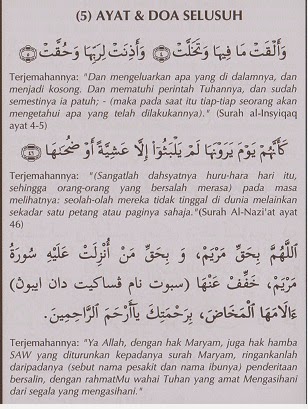 (5) AYAT & DOA SELUSUH
وَأَلْقَتْ مَا فِيهَا وَتَخَلَّتْ ۝٤ وَأَذِنَتْ لِرَبِّهَا وَحُقَّتْ ۝٥
Terjemahannya: "Dan mengeluarkan apa yang di dalamnya, dan
menjadi kosong. Dan mematuhi perintah Tuhannya, dan sudah
semestinya ia patuh; - (maka pada saat itu tiap-tiap seorang akan
mengetahui apa yang telah dilakukannya)." (Surah al-Insyiqaq
ayat 4-5)
كَأَنَّهُمْ يَوْمَ يَرَوْنَهَا لَمْ يَلْبَثُوٓا۟ إِلَّا عَشِيَّةً أَوْ ضُحَىٰهَا ۝٤٦
Terjemahannya: "(Sangatlah dahsyatnya huru-hara hari itu,
sehingga orang-orang yang bersalah merasa) pada masa
melihatnya: seolah-olah mereka tidak tinggal di dunia melainkan
sekadar satu petang atau paginya sahaja."(Surah Al-Nazi'at ayat
46)
اللَّهُمَّ بِحَقِّ مَرْيَمَ، وَ بِحَقِّ مَنْ أُنْزِلَتْ عَلَيْهِ سُورَةُ
مَرْيَمَ، خَفِّفْ عَنْهَا (سبوت نام ڤساكيت دان ايبوڽ)
ءَالَامَهَا الْمَخَاضَ، بِرَحْمَتِكَ يَاأَرْحَمَ الرَّاحِمِينَ.
Terjemahannya: "Ya Allah, dengan hak Maryam, juga hak hamba
SAW yang diturunkan kepadanya surah Maryam, ringankanlah
daripadanya (sebut nama pesakit dan nama ibunya) penderitaan
bersalin, dengan rahmatMu wahai Tuhan yang amat Mengasihani
dari segala yang mengasihani."